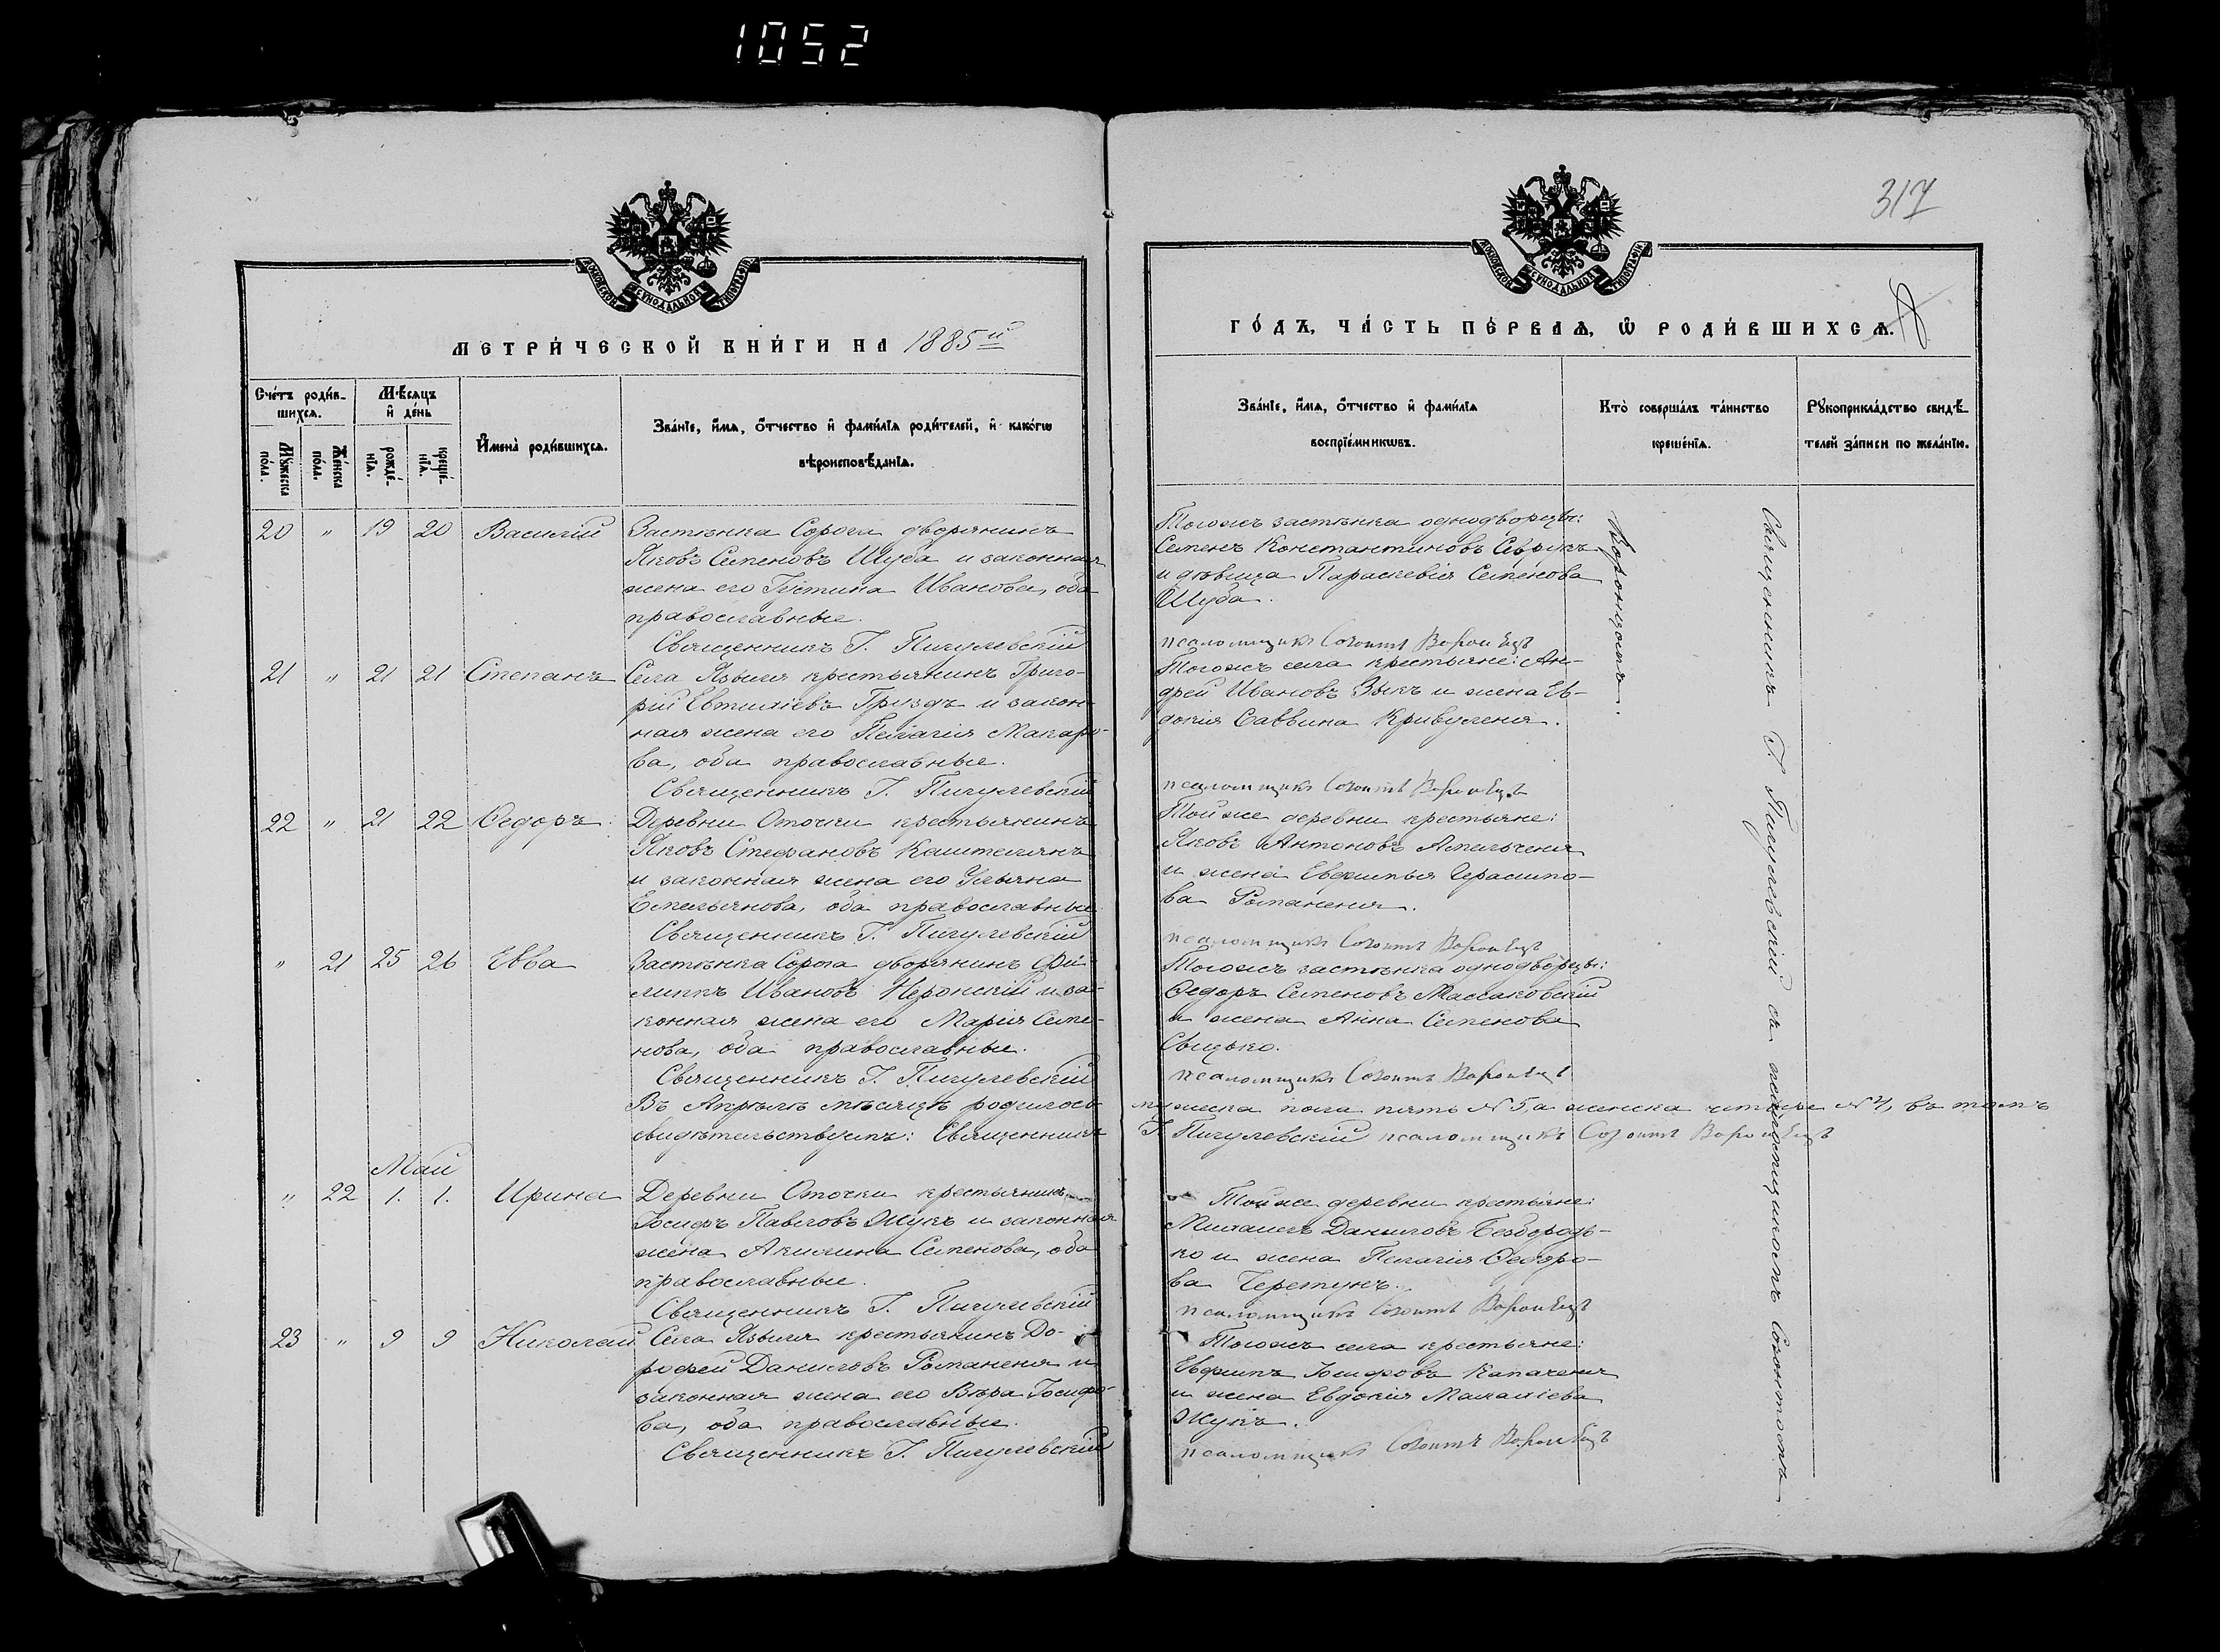 1052
317
МОСКОВСКОЙ СѴНОДАЛЬНОЙ ТИПОГРАФІИ
МОСКОВСКОЙ СѴНОДАЛЬНОЙ ТИПОГРАФІИ
МЕТРИ́ЧЕСКОЙ КНИ́ГИ НА 1885й
ГО́ДЪ, ЧА́СТЬ ПЕ́РВАѦ, Ѿ РОДИ́ВШИХСѦ.
Сче́тъ роди́в-
шихсѧ.
Мꙋ́жеска по́ла.
Же́нска по́ла.
Мѣ́сѧцъ и҆ де́нь
рожде́-нїѧ.
креще́-нїѧ.
И҆мена̀ роди́вшихсѧ.
Зва́нїе, и҆́мѧ, ѻ҆́тчество и҆ фами́лїѧ роди́телей, и҆ како́гѡ
вѣроисповѣ́данїѧ.
Зва́нїе, и҆́мѧ, ѻ҆́тчество и҆ фами́лїѧ
воспрїе́мникѡвъ.
Кто̀ соверша́лъ та́инство
креще́нїѧ.
Рꙋкоприкла́дство свидѣ́-
телей за́писи по жела́нїю.
20 " 19 20 Василій Застѣнка Сорога дворянинъ
Яковъ Семеновъ Шуба и законная
жена его Іустина Иванова, оба
православные.
Священникъ Г. Пигулевскій
Тогожъ застѣнка однодворцы:
Семенъ Константиновъ Севрукъ
и дѣвица Параскевія Семенова
Шуба.
псаломщикъ Созонтъ Воронецъ
21 " 21 21 Степанъ Села Языля крестьянинъ Григо-
рій Евтихіевъ Груздъ и закон-
ная жена его Пелагія Макаро-
ва, оба православные.
Священникъ Г. Пигулевскій
Тогожъ села крестьяне: Ан-
дрей Ивановъ Зыкъ и жена Ев-
докія Саввина Кривуленя.
псаломщикъ Созонтъ Воронецъ
22 " 21 22 Ѳедоръ Деревни Оточки крестьянинъ
Яковъ Стефановъ Каштелянъ
и законная жена его Ульяна
Емельянова, оба православные
Священникъ Г. Пигулевскій
Той же деревни крестьяне:
Яковъ Антоновъ Амельченя
и жена Евфимья Герасимо-
ва Романеня.
псаломщикъ Созонтъ Воронецъ
" 21 25 26 Евва Застѣнка Сорога дворянинъ Фи-
липпъ Ивановъ Неронскій и за-
конная жена его Марія Семе-
нова, оба православные.
Священникъ Г. Пигулевскій
Тогожъ застѣнка однодворцы:
Ѳедоръ Семеновъ Массаковскій
и жена Анна Семенова
Свидько.
псаломщикъ Созонтъ Воронецъ
Въ Апрѣлѣ мѣсяцѣ родилось мужеска пола пять N 5, а женска четыре N 4, въ томъ
свидѣтельствуемъ: Священникъ Г. Пигулевскій псаломщикъ Созонтъ Воронецъ
Май
" 22 1. 1. Ирина Деревни Оточки крестьянинъ
Іосифъ Павловъ Жукъ и законная
жена Акилина Семенова, оба
православные.
Священникъ Г. Пигулевскій
Той же деревни крестьяне:
Михаилъ Даниловъ Безбородь-
ко и жена Пелагія Ѳедоро-
ва Черетунъ.
псаломщикъ Созонтъ Воронецъ
23 " 9 9 Николай Села Языля крестьянинъ До-
рофей Даниловъ Романеня и
законная жена его Вѣра Іосифо-
ва, оба православные.
Священникъ Г. Пигулевскій
Тогожъ села крестьяне:
Евфимъ Іосифовъ Капаченя
и жена Евдокія Малахіева
Жукъ.
псаломщикъ Созонтъ Воронецъ
Священникъ Г. Пигулевскій съ псаломщикомъ Созонтомъ
Воронцомъ.